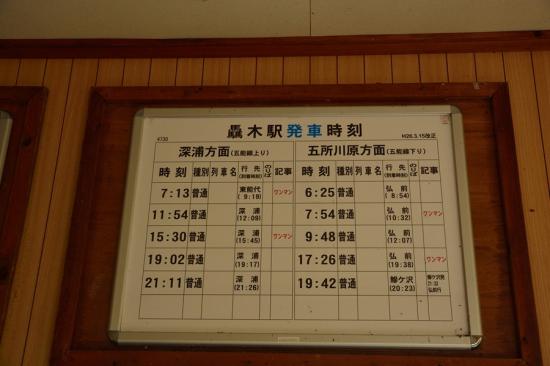 驫木駅発車時刻
4730
H26.3.15改正
深浦方面(五能線上り)
時刻 種別 列車名 行先(到着時刻) のりば 記事
7:13 普通 東能代(9:19) ワンマン
11:54 普通 深浦(12:09)
15:30 普通 深浦(15:45) ワンマン
19:02 普通 深浦(19:17)
21:11 普通 深浦(21:26)
五所川原方面(五能線下り)
時刻 種別 列車名 行先(到着時刻) のりば 記事
6:25 普通 弘前(8:54)
7:54 普通 弘前(10:32) ワンマン
9:48 普通 弘前(12:07)
17:26 普通 弘前(19:38) ワンマン
19:42 普通 鰺ケ沢(20:23) 鰺ケ沢発
弘前行